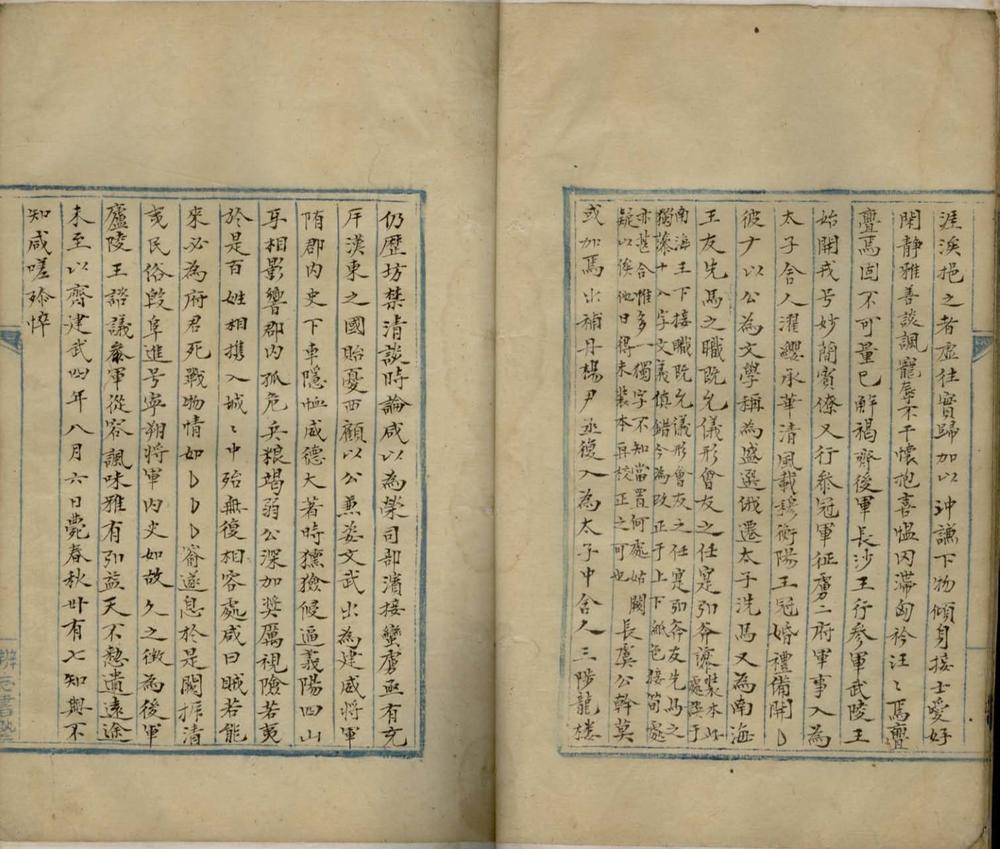 涯渙挹之者虛往實歸加以沖謙下物傾身接士愛好
閑靜雅善談諷寵辱不干懷抱喜慍因滯匈衿汪〻焉亹
亹焉固不可量已解褐齊後軍長沙王行參軍武陵王
始開戎号妙簡賓僚又行參冠軍征虜二府軍事入為
太子舍人濯纓承華清風載穆衡陽王冠婚禮備開
彼才以公為文學稱為盛選俄遷太子洗馬又為南海
王友先馬之職既允儀形會友之任寔弘
南海王下接職既允儀形會友之任寔弘 友先馬之
獨 十入字文義慎錯今為改正于上下紙色接筍處
亦甚合惟多一獨字不知當置何處姑闕
疑以俟他日得未裝本再校正之可也 長虞公幹莫
或加焉出補丹楊尹丞復入為太子中舍人三陟龍樓
仍歷坊禁清談時論咸以為榮司部濱接蠻虜亟有充
斥漢東之國貽憂西顧以公兼姿文武出為建威將軍
隨郡內史下車隱恤威德大著時獯獫侵逼義陽四山
互相影響郡內孤危兵粮竭弱公深加獎厲視險若夷
於是百姓相携入城〻中殆無復相容處咸曰賊若能
來必為府君死戰物情如 遂息於是闕 清
夷民俗殷阜進号寧朔將軍內史如故久之徵為後軍
廬陵王諮議參軍從容諷味雅有弘益天不憖遺遠途
未至以齊建武四年八月六日薨春秋卅有七知與不
知咸嗟殄悴